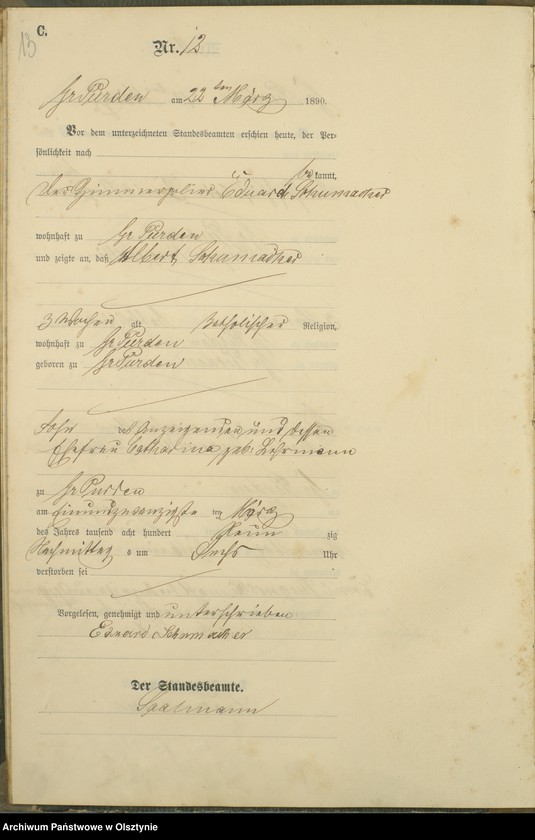 C.
13
Nr. 13
Gr Purden am 22ten März 1890.
Vor dem unterzeichneten Standesbeamten erschien heute, der Per-
sönlichkeit nach
be kannt,
der Zimmerpolier Eduard Schumacher
wohnhaft zu Gr Purden
und zeigte an, daß Albert Schumacher
3 Wochen alt, katholischer Religion,
wohnhaft zu Gr Purden
geboren zu Gr Purden
Sohn des Anzeigenden und dessen
Ehefrau Catharina geb. Lehrmann
zu Gr Purden
am einundzwanzigsten ten März
des Jahres tausend acht hundert Neun zig
Nachmittag s um Sechs Uhr
verstorben sei
Vorgelesen, genehmigt und unterschrieben
Eduard Schumacher
Der Standesbeamte.
Saalmann
Archiwum Państwowe w Olsztynie